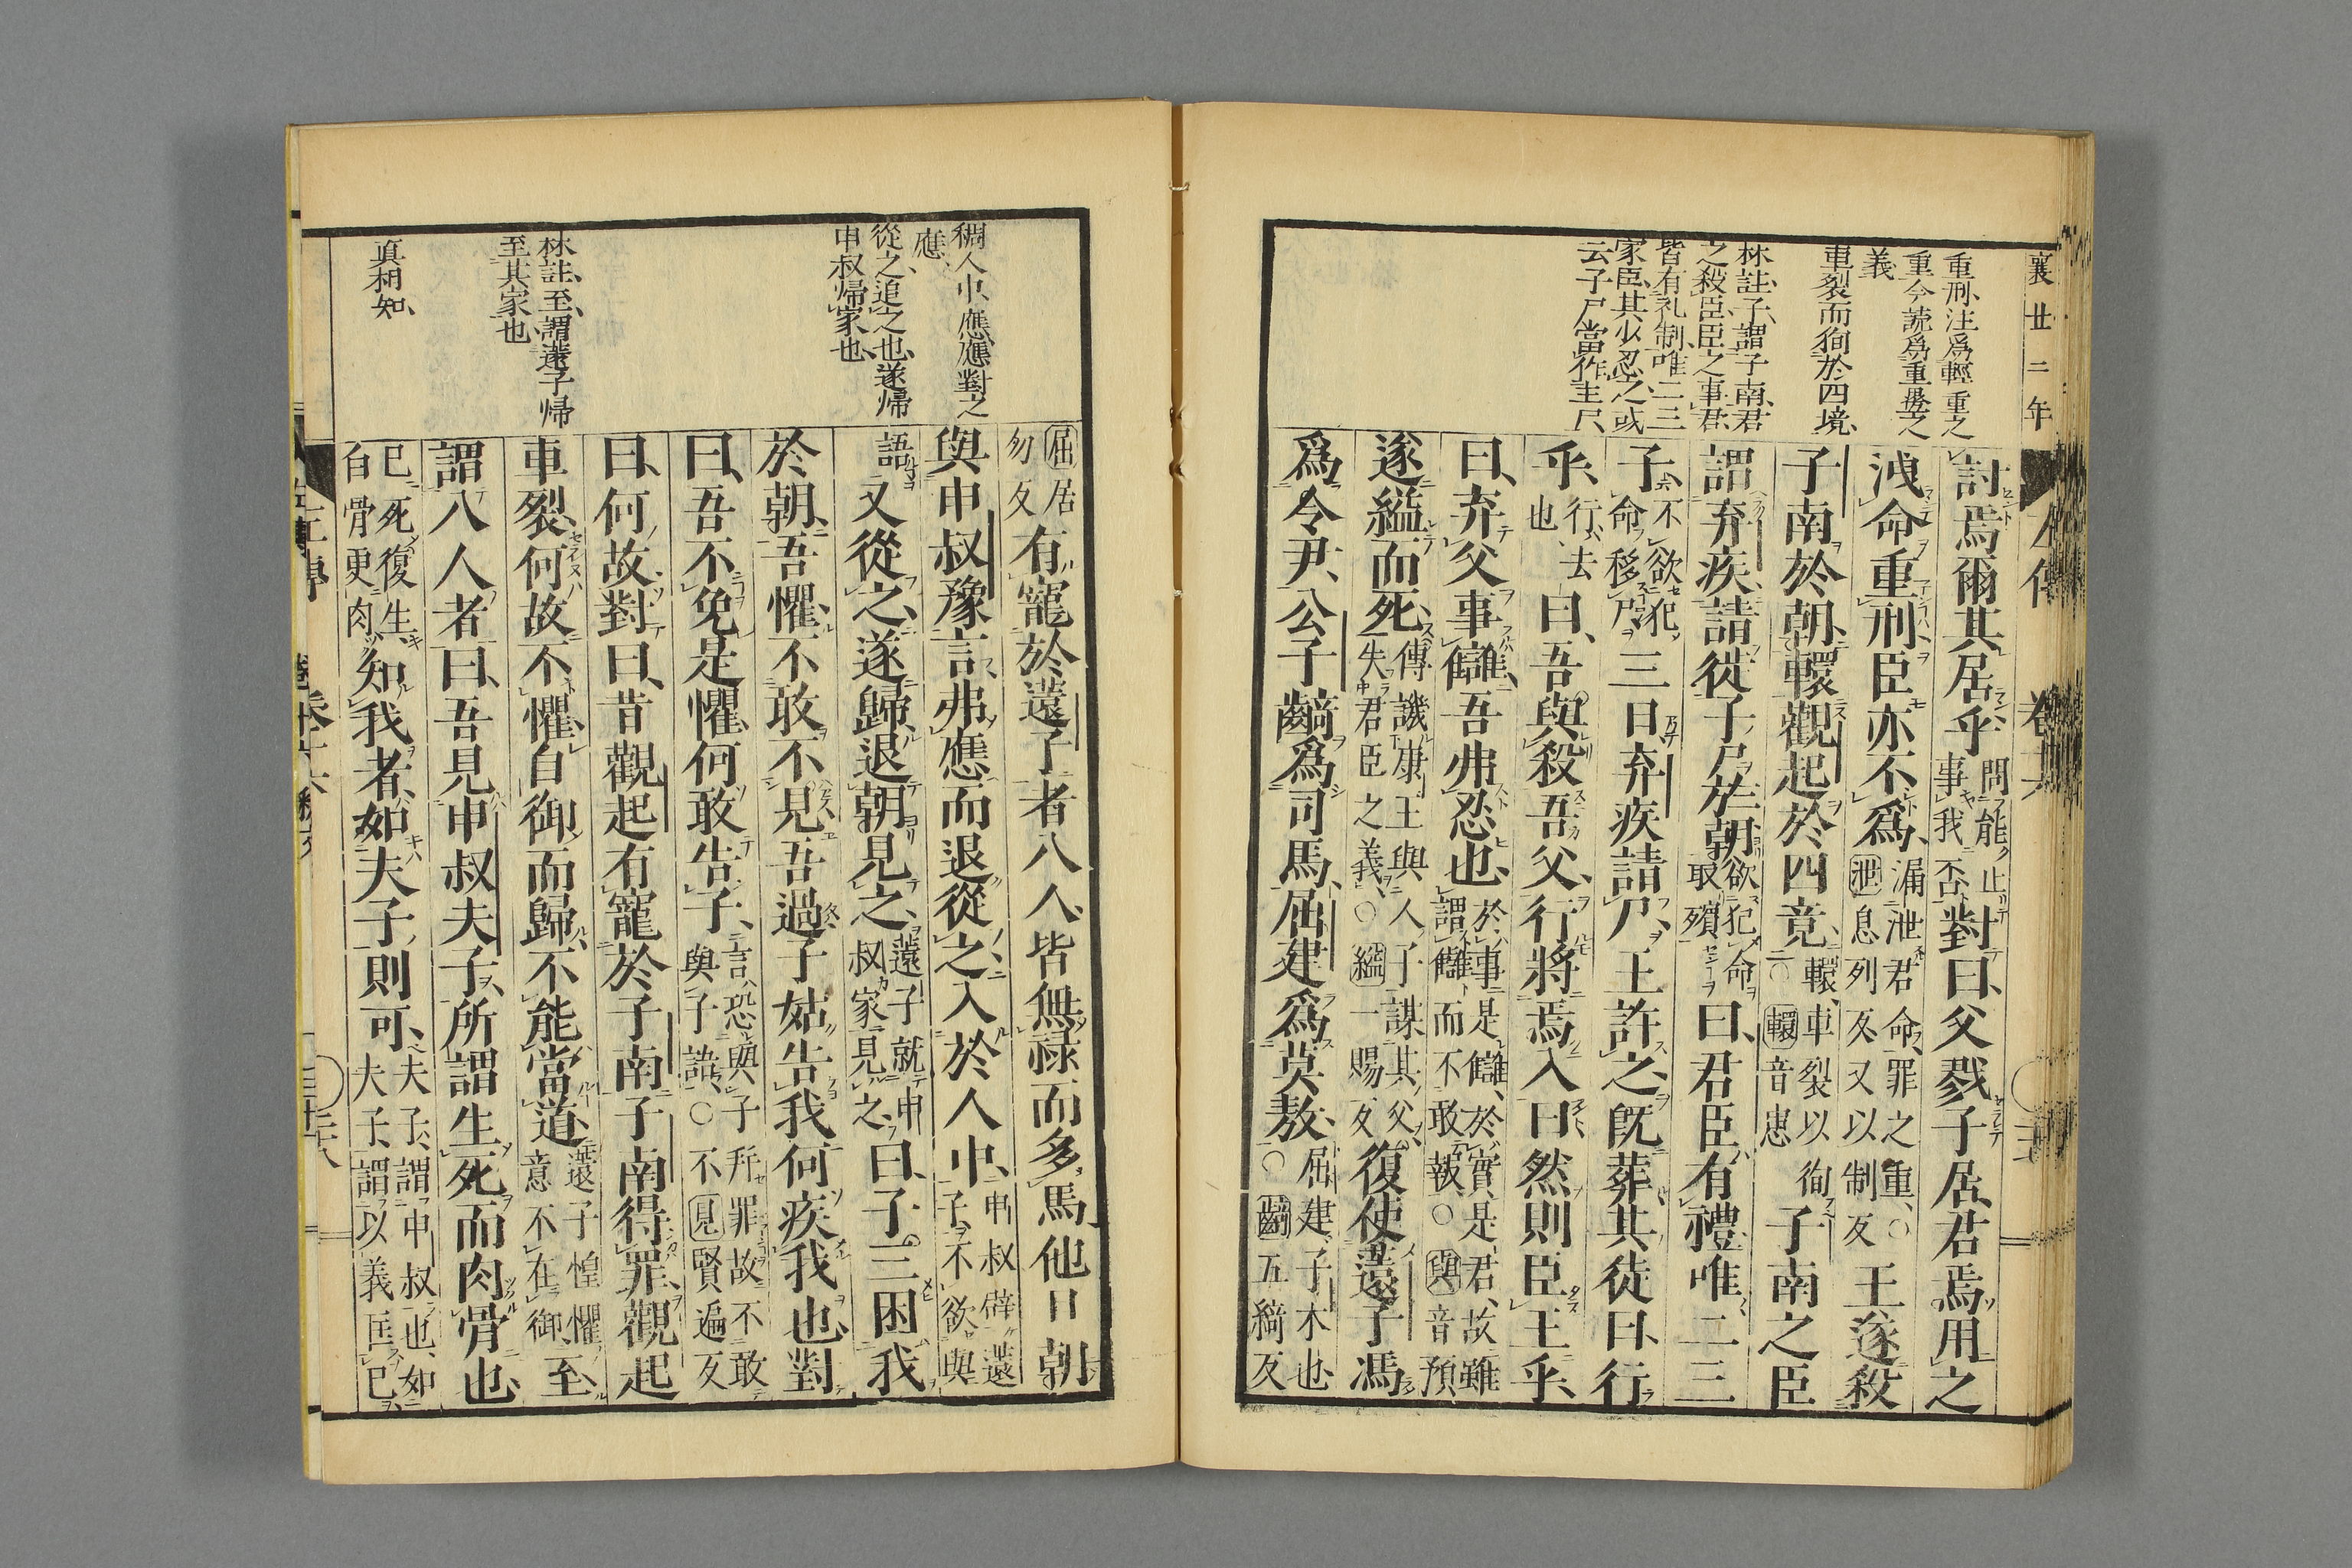 襄廿二年
重刑、注爲輕重之
重、今読爲重疊之
義
車裂而徇於四境、
林註、子、謂子南、君
之殺臣、臣之事君、
皆有礼制、唯二三
家臣、其少忍之、或
云、子尸當作主尸、
討焉爾其居乎問能止事我否對曰父戮子居君焉用之
洩命重刑臣亦不爲漏泄君命罪之重○泄息列反又以制反王遂殺
子南於朝轘觀起於四竟轘車裂以徇○轘音患子南之臣
謂弃疾請從子尸於朝欲犯命取殯曰君臣有禮唯二三
子不欲犯命移尸三日弃疾請尸王許之既葬其徒曰行
乎行去也曰吾與殺吾父行將焉入曰然則臣王乎
曰弃父事讎吾弗忍也於事是讎於實是君故雖謂讎而不敢報○與音預
遂縊而死傳譏康王與人子謀其父失君臣之義○縊一賜反復使薳子馮
爲令尹公子齮爲司馬屈建爲莫敖屈建子木也○齮五綺反
稠人中、應、應對之
應、
從之、追之也、遂帰
申叔帰家也、
林註、至、謂薳子帰
至其家也、
真相知、
屈居勿反有寵於薳子者八人皆無祿而多馬他日朝
與申叔豫言弗應而退從之入於人中申叔辟薳子不欲與
語又從之遂歸退朝見之薳子就申叔家見之曰子三困我
於朝吾懼不敢不見吾過子姑告我何疾我也對
曰吾不免是懼何敢告子言恐與子并罪故不敢與子語○不見賢遍反
曰何故對曰昔觀起有寵於子南子南得罪觀起
車裂何故不懼自御而歸不能當道薳子惶懼意不在御至
謂八人者曰吾見申叔夫子所謂生死而肉骨也
已死復生白骨更肉知我者如夫子則可夫子謂申叔也如夫子謂以義匡已